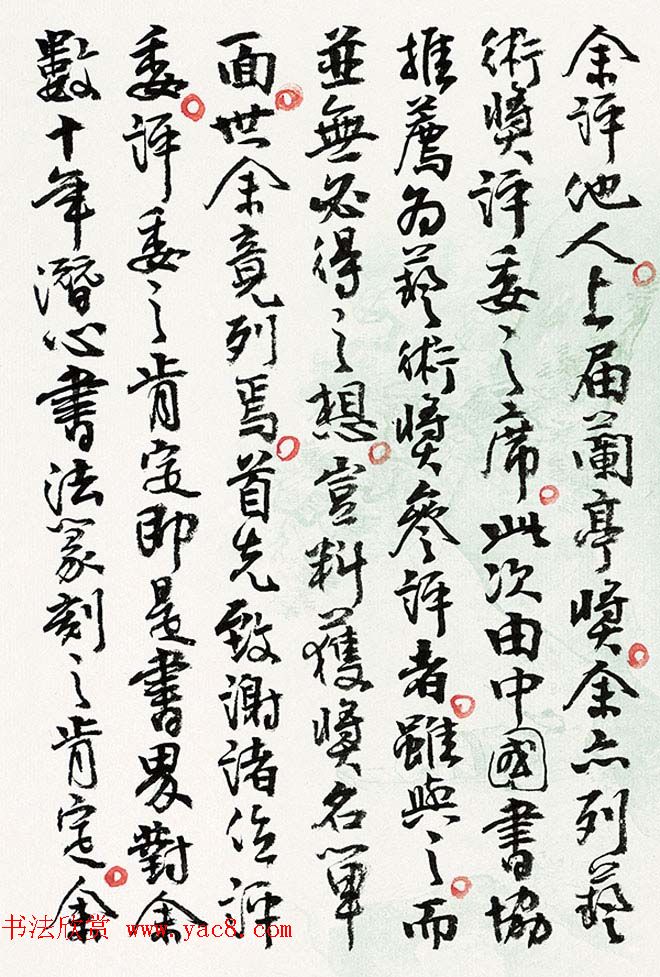 余評他人上届蘭亭奬余亦列藝
術奬評委之席此次由中國書協
推薦为藝術奬參評者雖與之而
並無必得之想豈料獲奬名單
面世余竟列焉首先致謝諸位評
委評委之肯定即是書界對余
數十年潛心書法篆刻之肯定余
书法欣赏 www.yac8.com